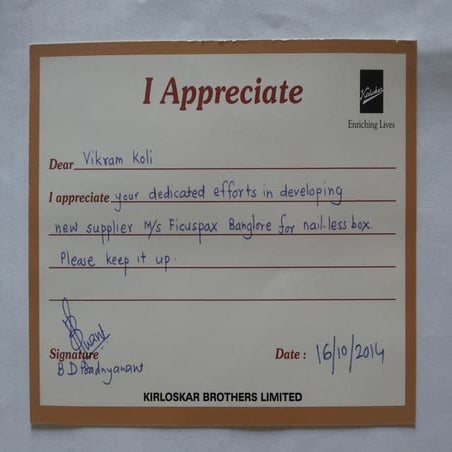 I Appreciate
Kirloskar
Enriching Lives
Dear Vikram Koli
I appreciate your dedicated efforts in developing
new supplier M/s Ficuspax Banglore for nail-less box.
Please keep it up.
Signature
Date : 16/10/2014
B D
KIRLOSKAR BROTHERS LIMITED